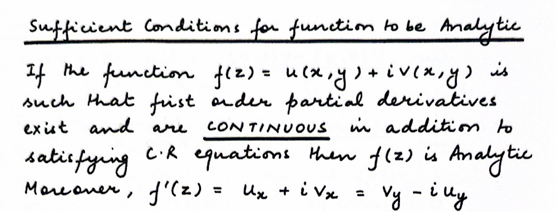 Sufficient Conditions for function to be Analytic
If the function f(z) = u(x,y) + i v(x,y) is
such that first order partial derivatives
exist and are CONTINUOUS in addition to
satisfying C.R equations then f(z) is Analytic
Moreover, f'(z) = ux + i vx = vy - i uy